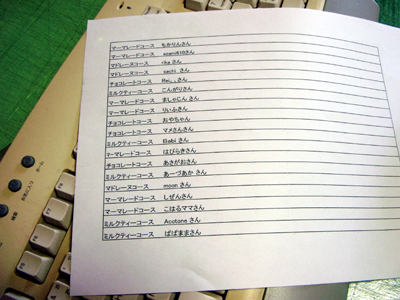 マーマレードコース　ちかりんさん
マーマレードコース
マドレーヌコース　rika さん
マドレーヌコース　sachi さん
チョコレートコース　Rei。。さん
ミルクティーコース　こんがりさん
マーマレードコース　ましゃじん さん
マーマレードコース　りいふさん
チョコレートコース　おやちゃん
チョコレートコース　マメさんさん
ミルクティーコース　Babi さん
マーマレードコース　はぴらきさん
チョコレートコース　あきがおさん
ミルクティーコース　あーづあか さん
マドレーヌコース　moon さん
マーマレードコース　しぜんさん
マーマレードコース　こはるママさん
ミルクティーコース　Acotane さん
ミルクティーコース　ぱぱままさん